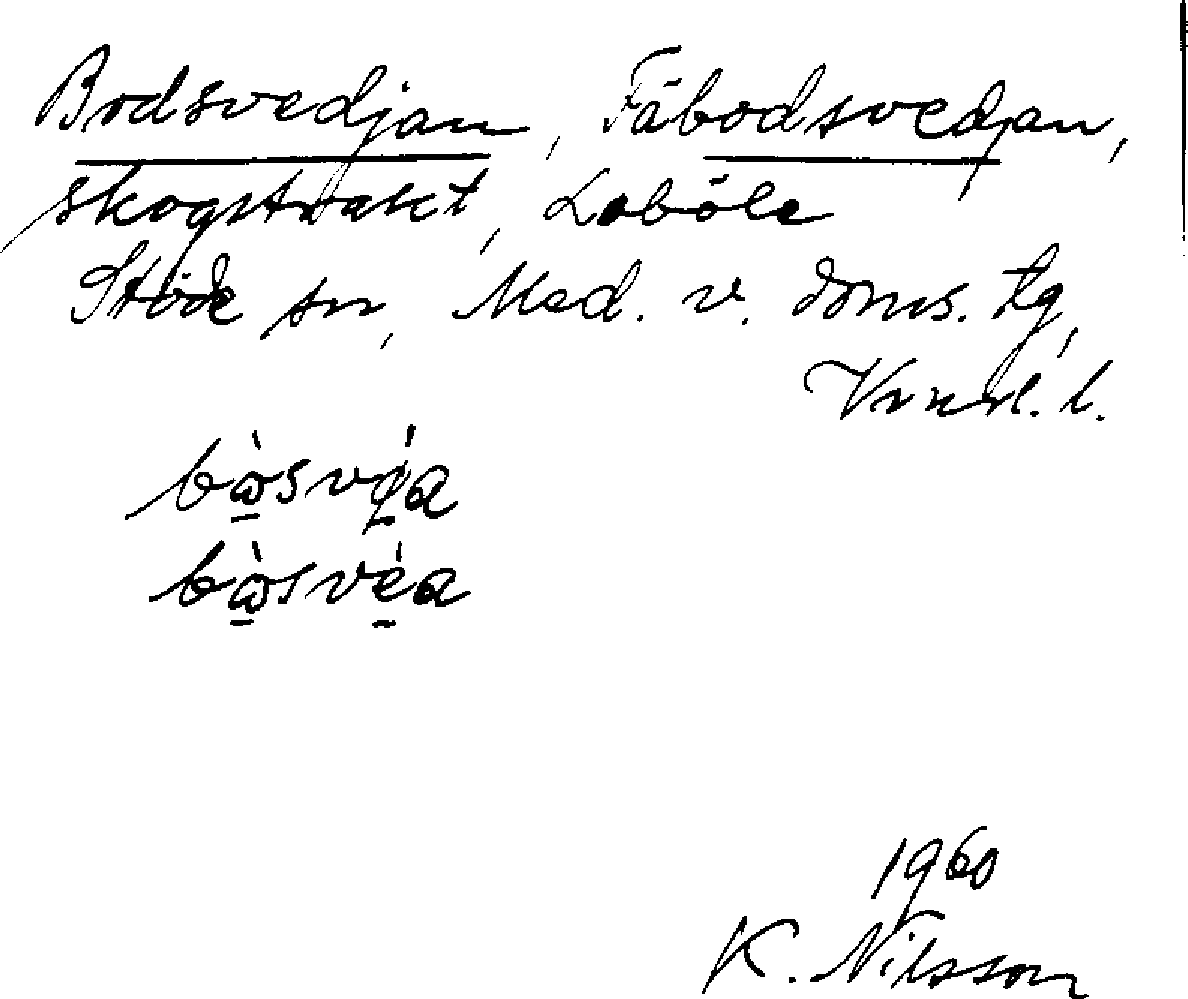 Bodsvedjan, Fäbodsvedjan,
skogstrakt, Loböle
Stöde sn, Med. v. doms. tg,
Vrnrl. l.
bὼ̱své̱a
bὼ̱svè̱a
1960
K. Nilsson